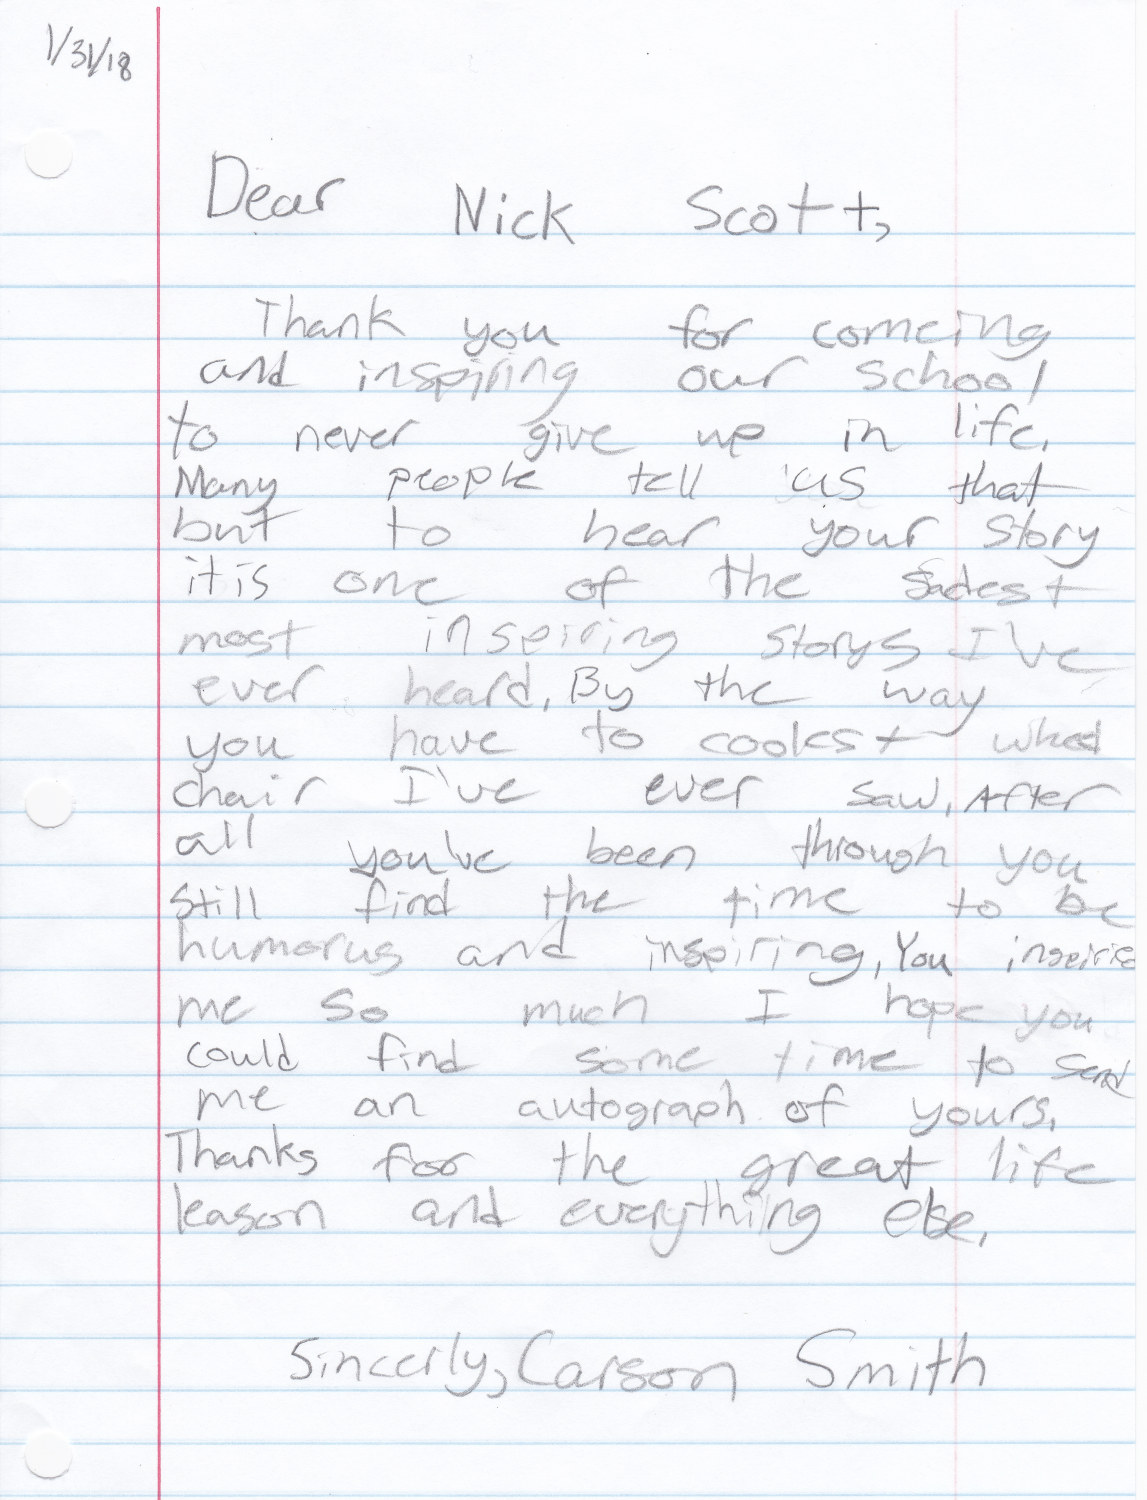 1/31/18
Dear Nick Scott,
Thank you for comeing
and inspiring our school
to never give up in life.
Many people tell us that
but to hear your story
it is one of the sadest
most inspiring storys I've
ever heard, By the way
you have to coolest wheel
chair I've ever saw, After
all you've been through you
still find the time to be
humorus and inspiring, You inspire
me so much I hope you
could find some time to send
me an autograph of yours.
Thanks for the great life
leason and everything else.
Sincerly, Carson Smith